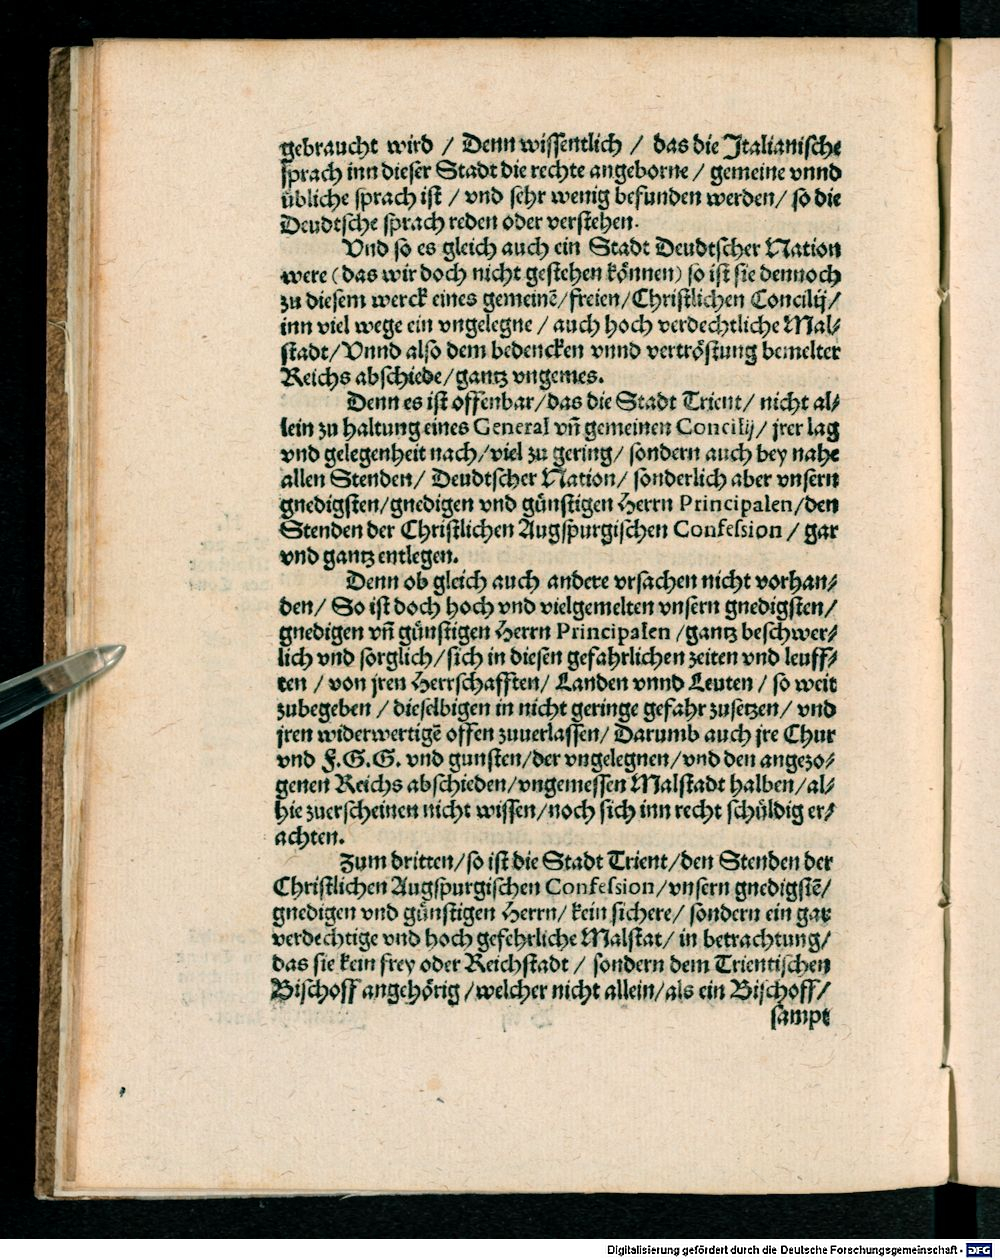 gebraucht wird / Denn wissentlich / das die Italianische
sprach inn dieser Stadt die rechte angeborne / gemeine vnnd
übliche sprach ist / vnd sehr wenig befunden werden / so die
Deudtsche sprach reden oder verstehen.
Vnd so es gleich auch ein Stadt Deudtscher Nation
were (das wir doch nicht gestehen können) so ist sie dennoch
zu diesem werck eines gemeinẽ/freien/Christlichen Concilij/
inn viel wege ein vngelegne / auch hoch verdechtliche Mal⸗
stadt/Vnnd also dem bedencken vnnd vertröstung bemelter
Reichs abschiede/gantz vngemes.
Denn es ist offenbar/das die Stadt Trient/ nicht al⸗
lein zu haltung eines General vñ gemeinen Concilij/ jrer lag
vnd gelegenheit nach/viel zu gering/ sondern auch bey nahe
allen Stenden/ Deudtscher Nation/ sonderlich aber vnsern
gnedigsten/gnedigen vnd günstigen Herrn Principalen/den
Stenden der Christlichen Augspurgischen Confession / gar
vnd gantz entlegen.
Denn ob gleich auch andere vrsachen nicht vorhan⸗
den/ So ist doch hoch vnd vielgemelten vnsern gnedigsten/
gnedigen vñ günstigen Herrn Principalen /gantz beschwer⸗
lich vnd sorglich/sich in diesen gefahrlichen zeiten vnd leuff⸗
ten / von jren Herrschafften/ Landen vnnd Leuten / so weit
zubegeben / dieselbigen in nicht geringe gefahr zusetzen/ vnd
jren widerwertigẽ offen zuuerlassen/ Darumb auch jre Chur
vnd F.G.G. vnd gunsten/der vngelegnen/vnd den angezo⸗
genen Reichs abschieden/vngemessen Malstadt halben/al⸗
hie zuerscheinen nicht wissen/noch sich inn recht schüldig er⸗
achten.
Zum dritten/so ist die Stadt Trient/den Stenden der
Christlichen Augspurgischen Confession/vnsern gnedigstẽ/
gnedigen vnd günstigen Herrn/ kein sichere/ sondern ein gar
verdechtige vnd hoch gefehrliche Malstat/ in betrachtung/
das sie kein frey oder Reichstadt / sondern dem Trientischen
Bischoff angehörig /welcher nicht allein/als ein Bischoff/
sampt
Digitalisierung gefördert durch die Deutsche Forschungsgemeinschaft - DFG